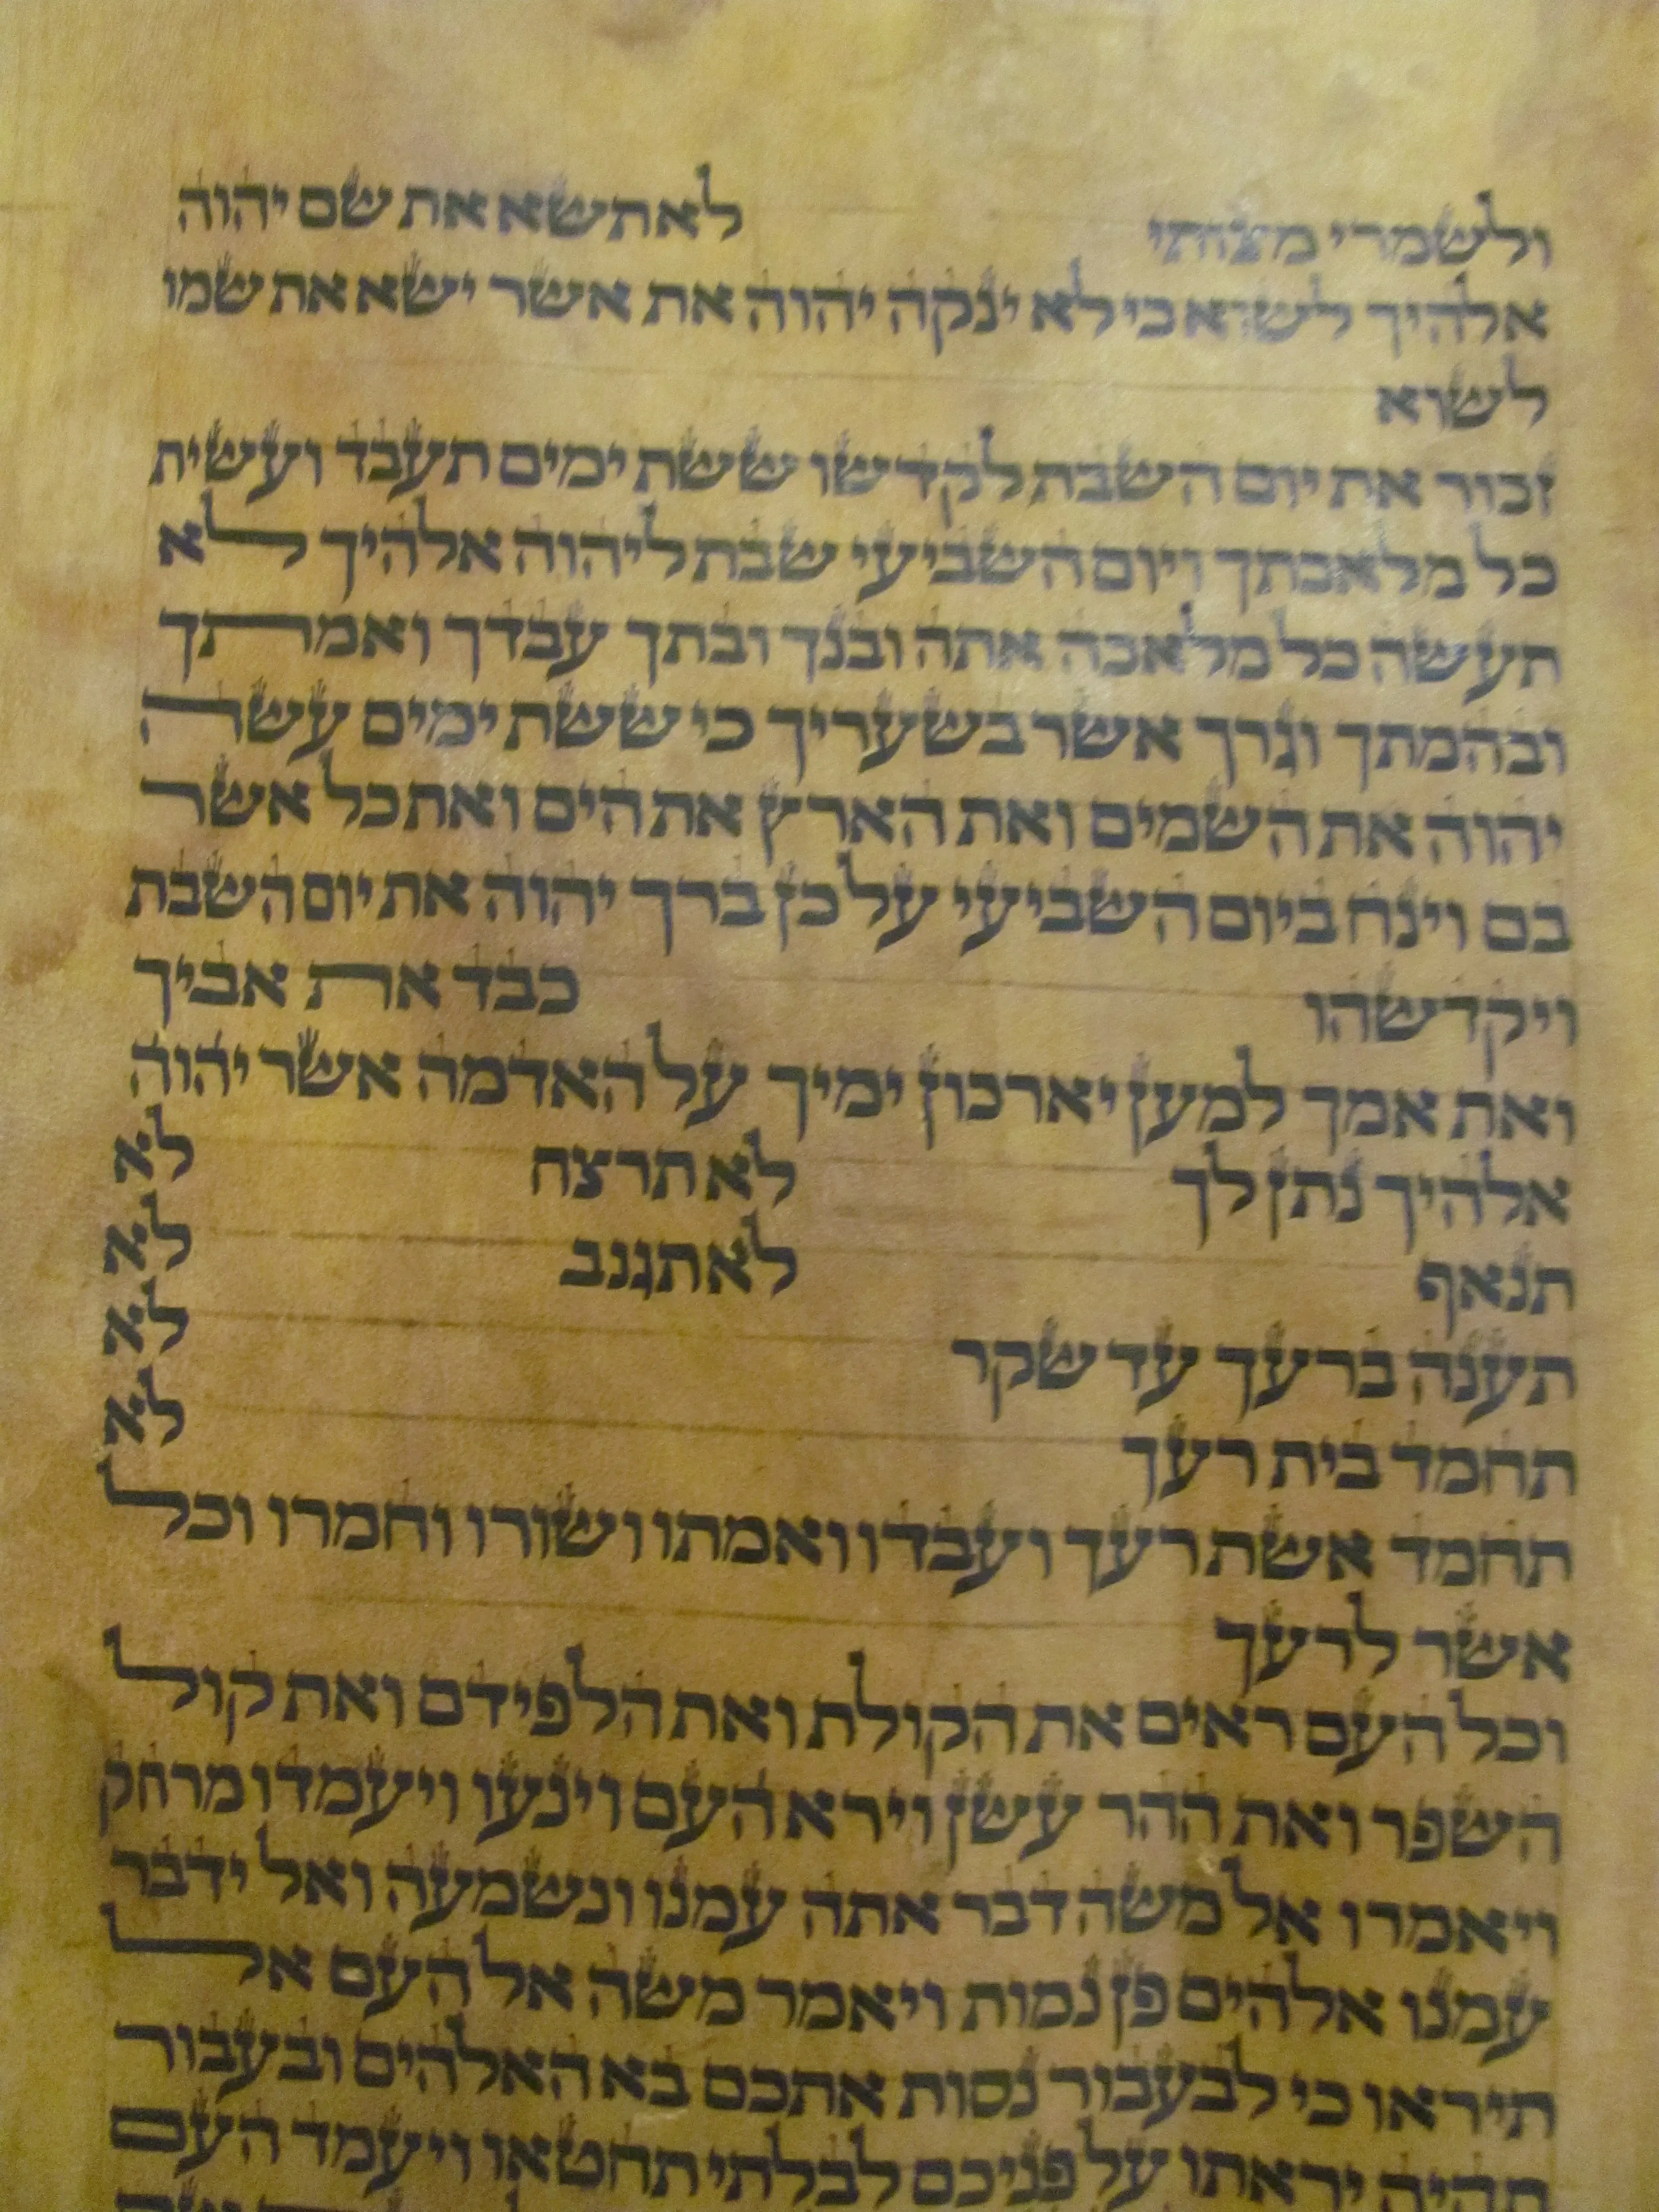 ולשמרי מצותי לא תשא את שם יהוה
אלהיך לשוא כי לא ינקה יהוה את אשר ישא את שמו
לשוא
זכור את יום השבת לקדשו ששת ימים תעבד ועשית
כל מלאכתך ויום השביעי שבת ליהוה אלהיך לא
תעשה כל מלאכה אתה ובנך ובתך עבדך ואמתך
ובהמתך וגרך אשר בשעריך כי ששת ימים עשה
יהוה את השמים ואת הארץ את הים ואת כל אשר
בם וינח ביום השביעי על כן ברך יהוה את יום השבת
ויקדשהו כבד את אביך
ואת אמך למען יארכון ימיך על האדמה אשר יהוה
אלהיך נתן לך לא תרצח לא
תנאף לא תגנב לא
תענה ברעך עד שקר לא
תחמד בית רעך לא
תחמד אשת רעך ועבדו ואמתו ושורו וחמרו וכל
אשר לרעך
וכל העם ראים את הקולת ואת הלפידם ואת קול
השפר ואת ההר עשן וירא העם וינעו ויעמדו מרחק
ויאמרו אל משה דבר אתה עמנו ונשמעה ואל ידבר
עמנו אלהים פן נמות ויאמר משה אל העם אל
תיראו כי לבעבור נסות אתכם בא האלהים ובעבור
תהיה יראתו על פניכם לבלתי תחטאו ויעמד העם